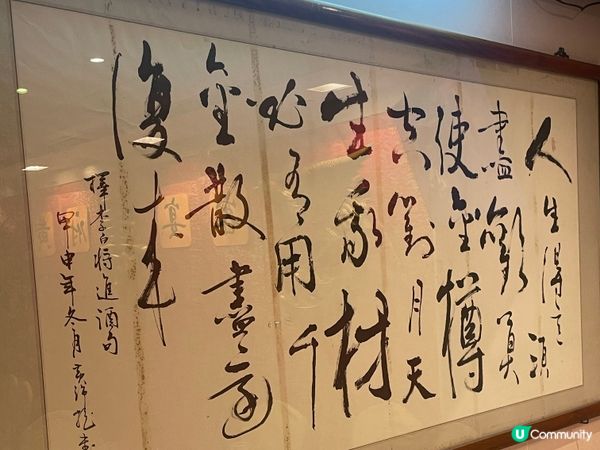 人生得意須
盡歡莫
使金樽
空對月天
生我材
必有用千
金散盡還
復來
擇李白將進酒句
甲申年冬月
宴
U Community